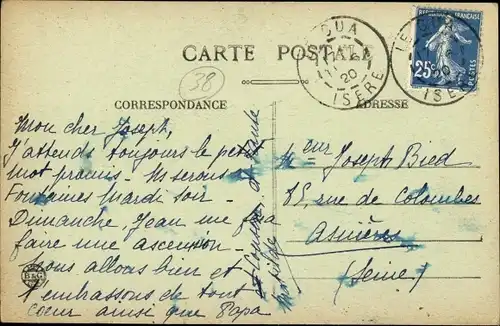 CARTE POSTALE
38
CORRESPONDANCE
ADRESSE
20
ISERE
ISERE
25c
POSTES
Mon cher Joseph,
J'attends toujours le petit
mot promis - M serons à
Fontaines Mardi soir -
Dimanche, Jean me fera
faire une ascension -
Nous allons bien et
t'embrassons de tout
coeur ainsi que Papa
Mathilde
B&G
Mr Joseph Bied
85, rue de Colombes
Asnières
(Seine)